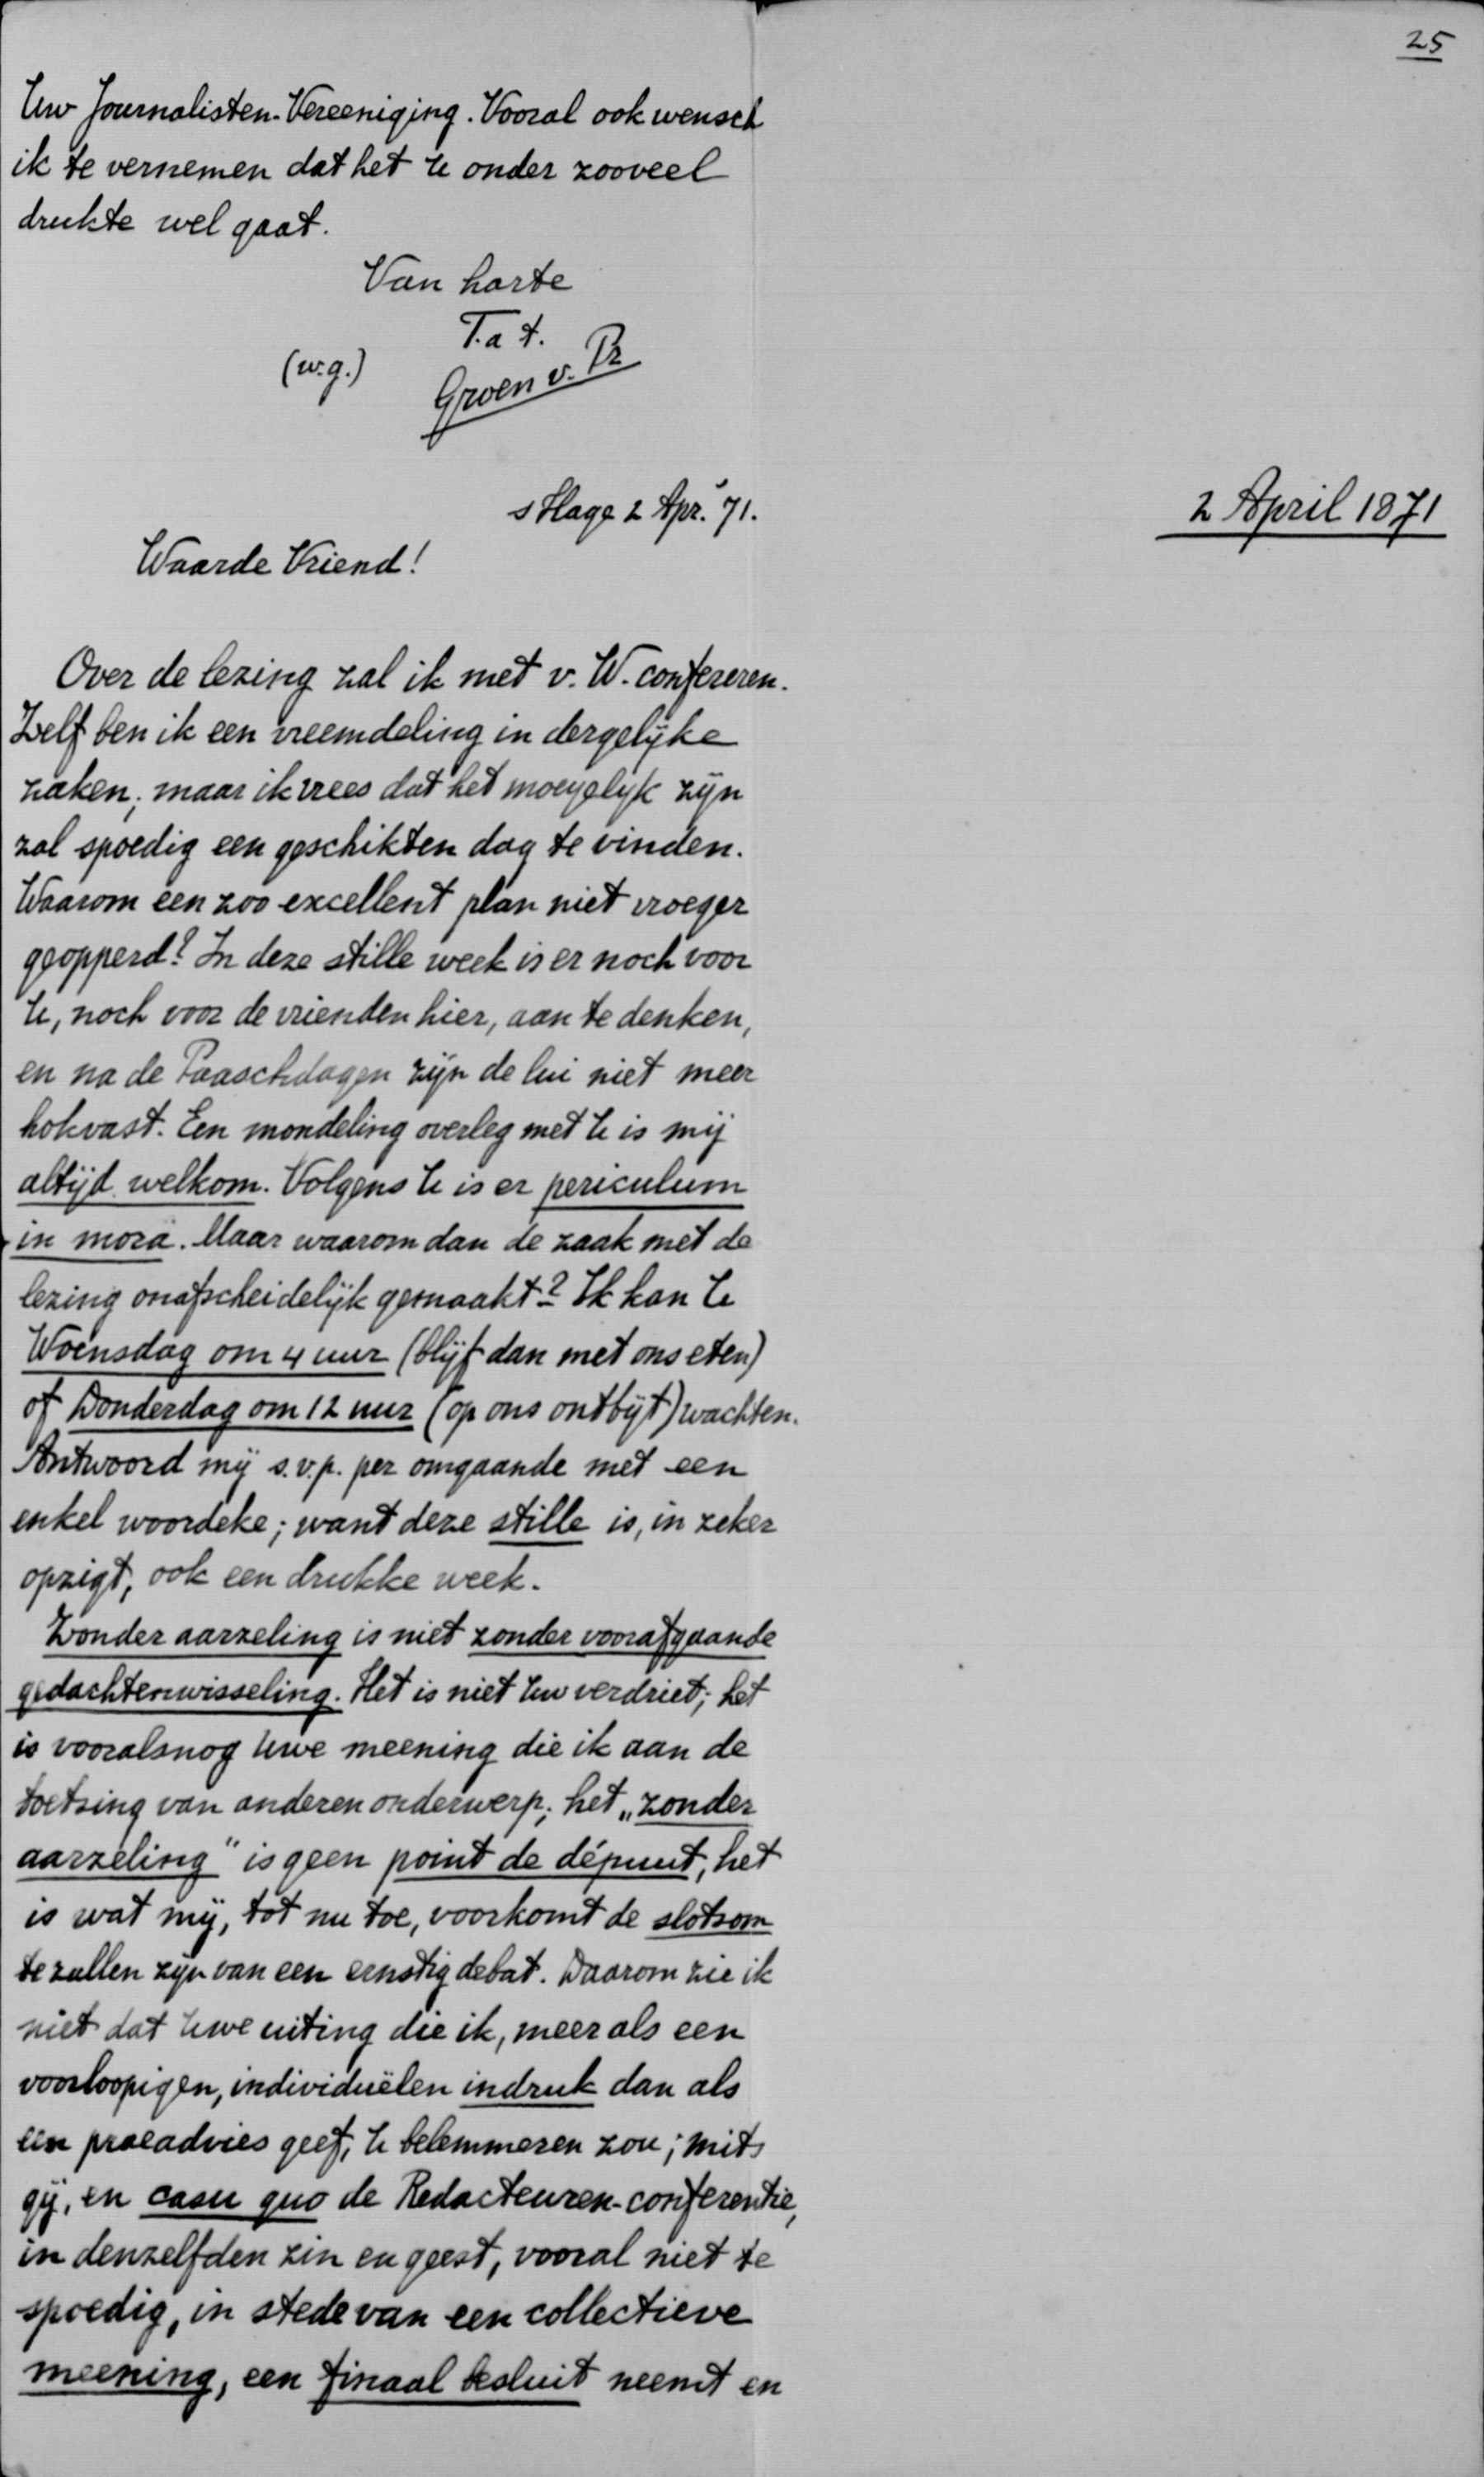 25
Uw Journalisten-Vereeniging. Vooral ook wensch
ik te vernemen dat het U onder zooveel
drukte wel gaat.
Van harte
T.a t.
(w.g.) Groen v. Pr
s Hage 2 Apr. '71.
2 April 1871
Waarde Vriend!
Over de lezing zal ik met v. W. confereren.
Zelf ben ik een vreemdeling in dergelijke
zaken; maar ik vrees dat het moeyelyk zijn
zal spoedig een geschikten dag te vinden.
Waarom een zoo excellent plan niet vroeger
geopperd? In deze stille week is er noch voor
U, noch voor de vrienden hier, aan te denken,
en na de Paaschdagen zijn de lui niet meer
hokvast. Een mondeling overleg met U is mij
altijd welkom. Volgens U is er periculum
in mora. Maar waarom dan de zaak met de
lezing onafscheidelijk gemaakt? Ik kan U
Woensdag om 4 uur (blijf dan met ons eten)
of Donderdag om 12 uur (op ons ontbijt) wachten.
Antwoord mij s.v.p. per omgaande met een
enkel woordeke; want deze stille is, in zeker
opzigt, ook een drukke week.
Zonder aarzeling is niet zonder voorafgaande
gedachtenwisseling. Het is niet Uw verdriet; het
is vooralsnog Uwe meening die ik aan de
toetsing van anderen onderwerp; het „zonder
aarzeling" is geen point de départ, het
is wat mij, tot nu toe, voorkomt de slotsom
te zullen zijn van een ernstig debat. Daarom zie ik
niet dat Uwe uiting die ik, meer als een
voorloopigen, individuëlen indruk dan als
een praeadvies geef, U belemmeren zou; mits
gij, en casu quo de Redacteuren-conferentie,
in denzelfden zin en geest, vooral niet te
spoedig, in stede van een collectieve
meening, een finaal besluit neemt en